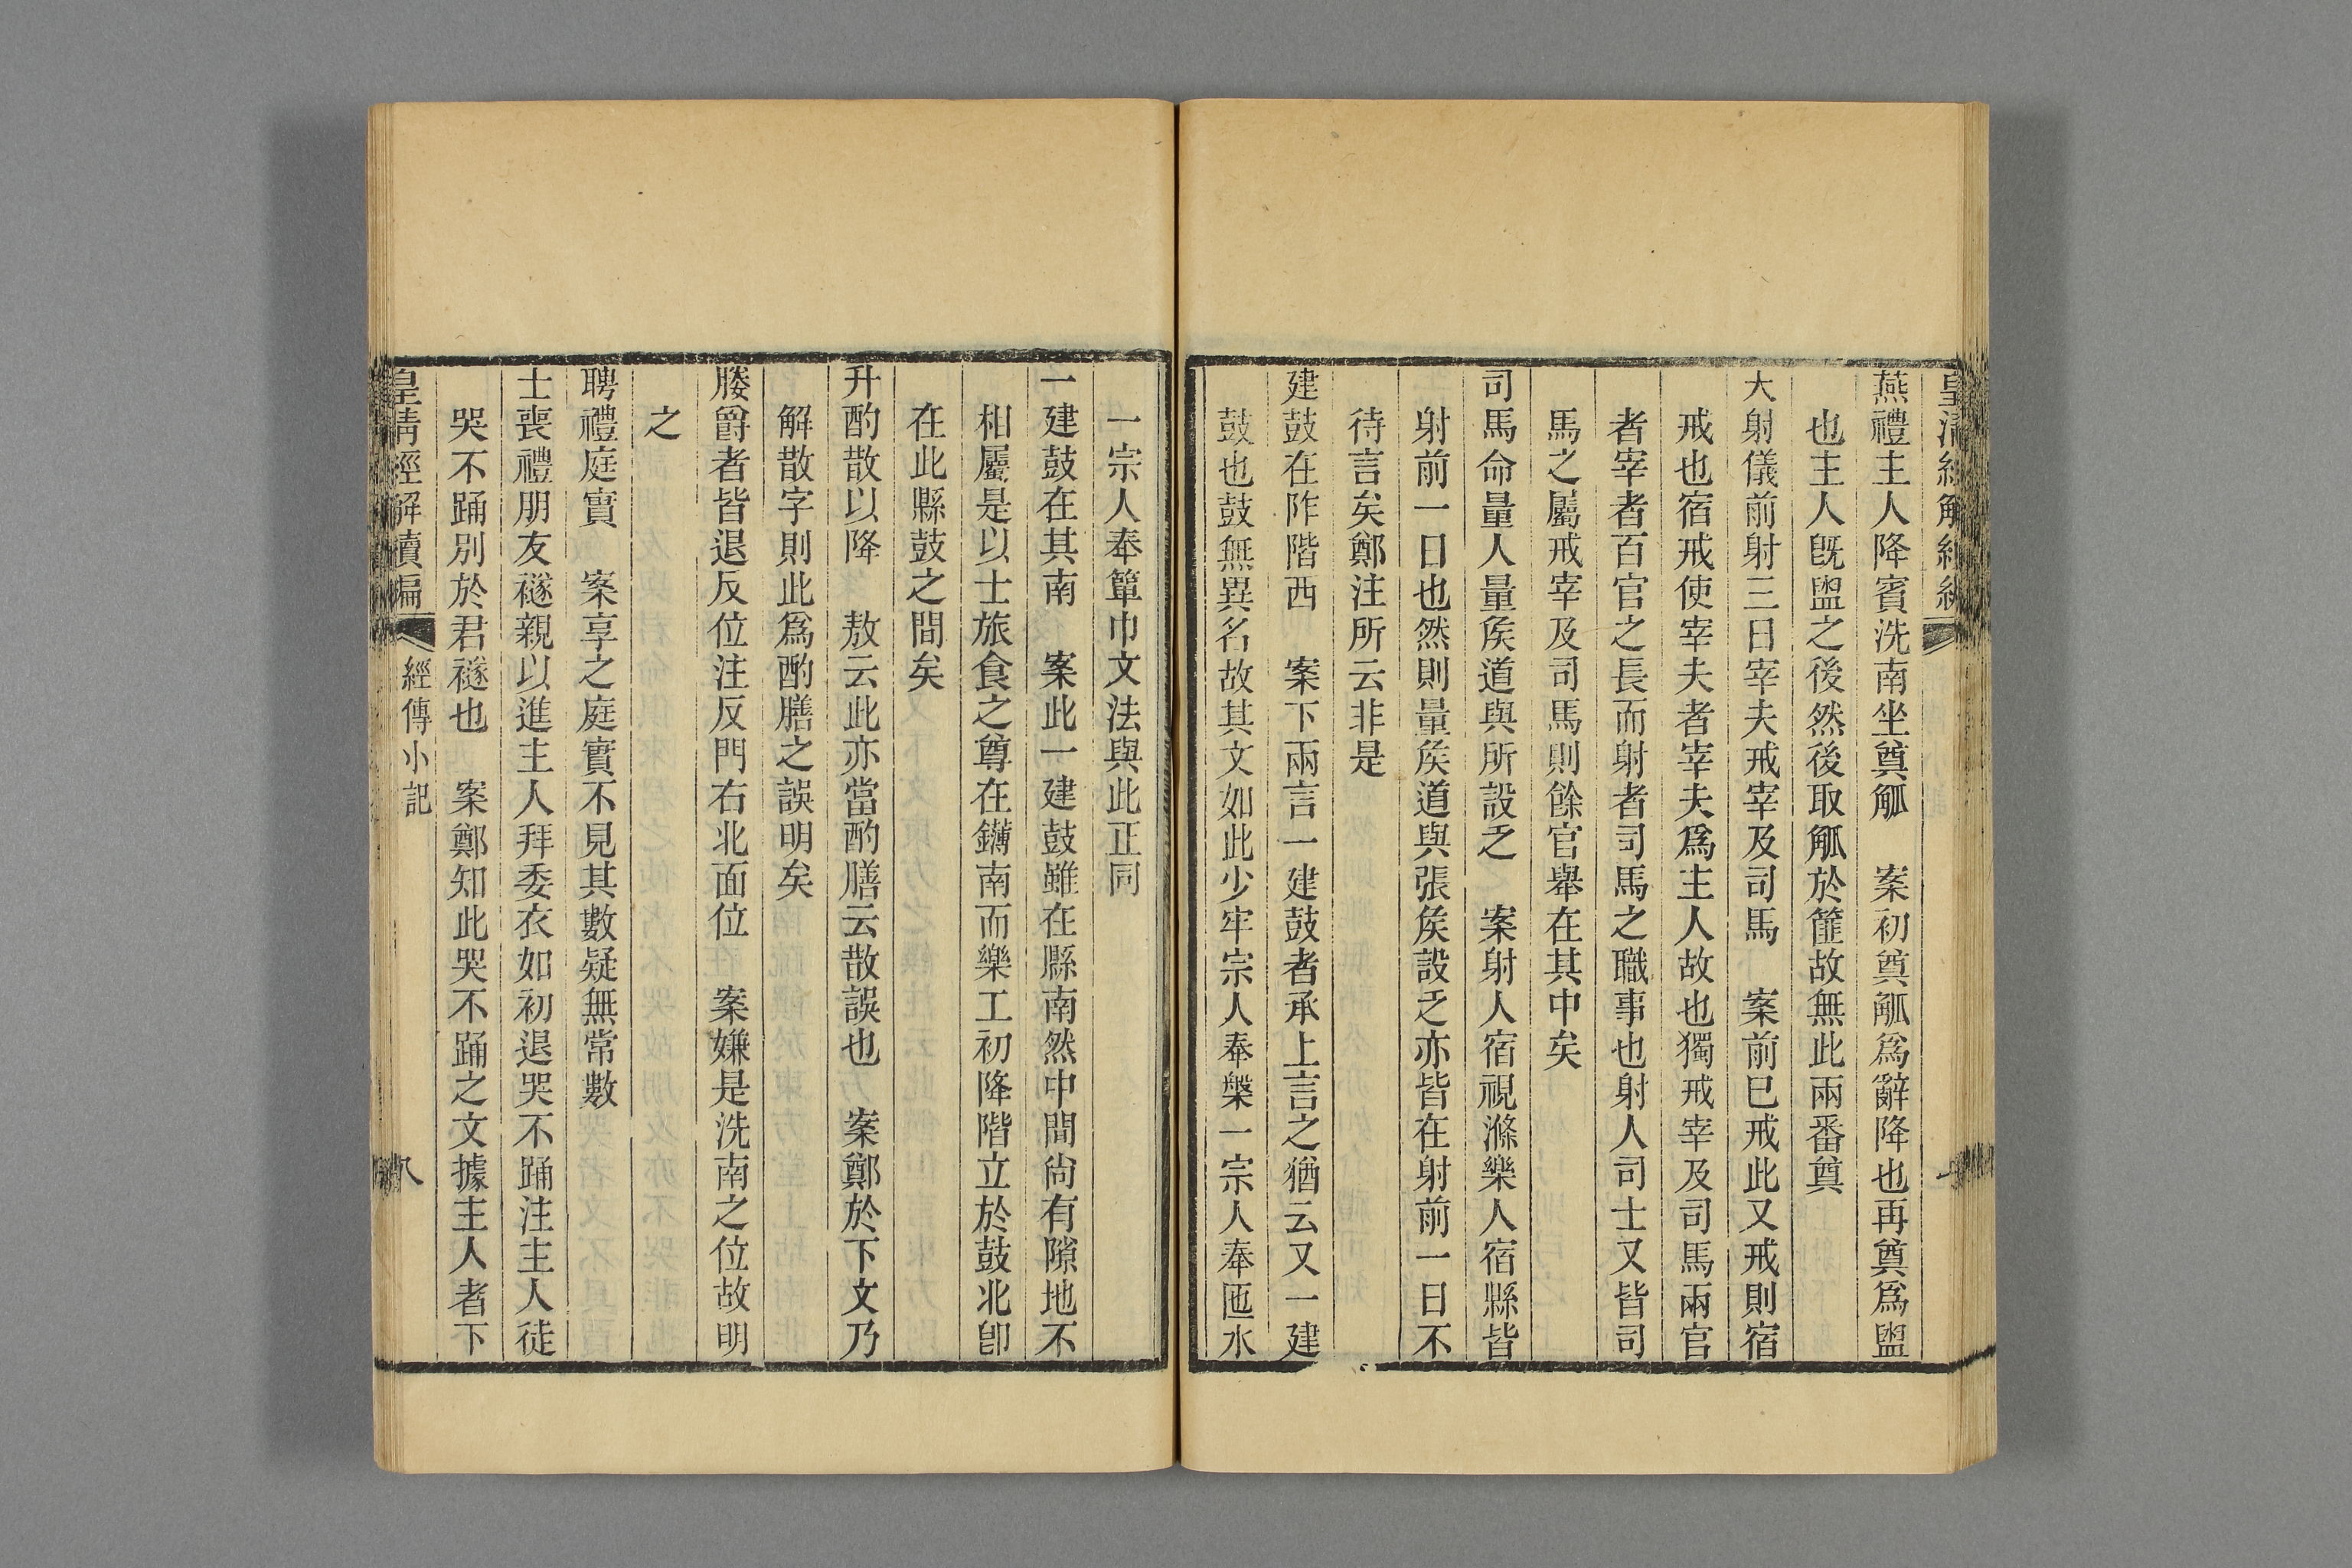 燕禮主人降賓洗南坐奠觚　案初奠觚爲辭降也再奠爲盥
也主人旣盥之後然後取觚於篚故無此兩番奠
大射儀前射三日宰夫戒宰及司馬　案前巳戒此又戒則宿
戒也宿戒使宰夫者宰夫爲主人故也獨戒宰及司馬兩官
者宰者百官之長而射者司馬之職事也射人司士又皆司
馬之屬戒宰及司馬則餘官舉在其中矣
司馬命量人量矦道與所設乏　案射人宿視滌樂人宿縣皆
射前一日也然則量矦道與張矦設乏亦皆在射前一日不
待言矣鄭注所云非是
建鼓在阼階西　案下兩言一建鼓者承上言之猶云又一建
鼓也鼓無異名故其文如此少牢宗人奉槃一宗人奉匜水
一宗人奉簞巾文法與此正同
一建鼓在其南　案此一建鼓雖在縣南然中間尙有隙地不
相屬是以士旅食之尊在鑮南而樂工初降階立於鼓北卽
在此縣鼓之間矣
升酌散以降　敖云此亦當酌膳云散誤也　案鄭於下文乃
解散字則此爲酌膳之誤明矣
媵爵者皆退反位注反門右北面位　案嫌是洗南之位故明
之
聘禮庭實　案享之庭實不見其數疑無常數
士喪禮朋友襚親以進主人拜委衣如初退哭不踊注主人徒
哭不踊別於君襚也　案鄭知此哭不踊之文據主人者下
皇淸經解續編
經傳小記
八